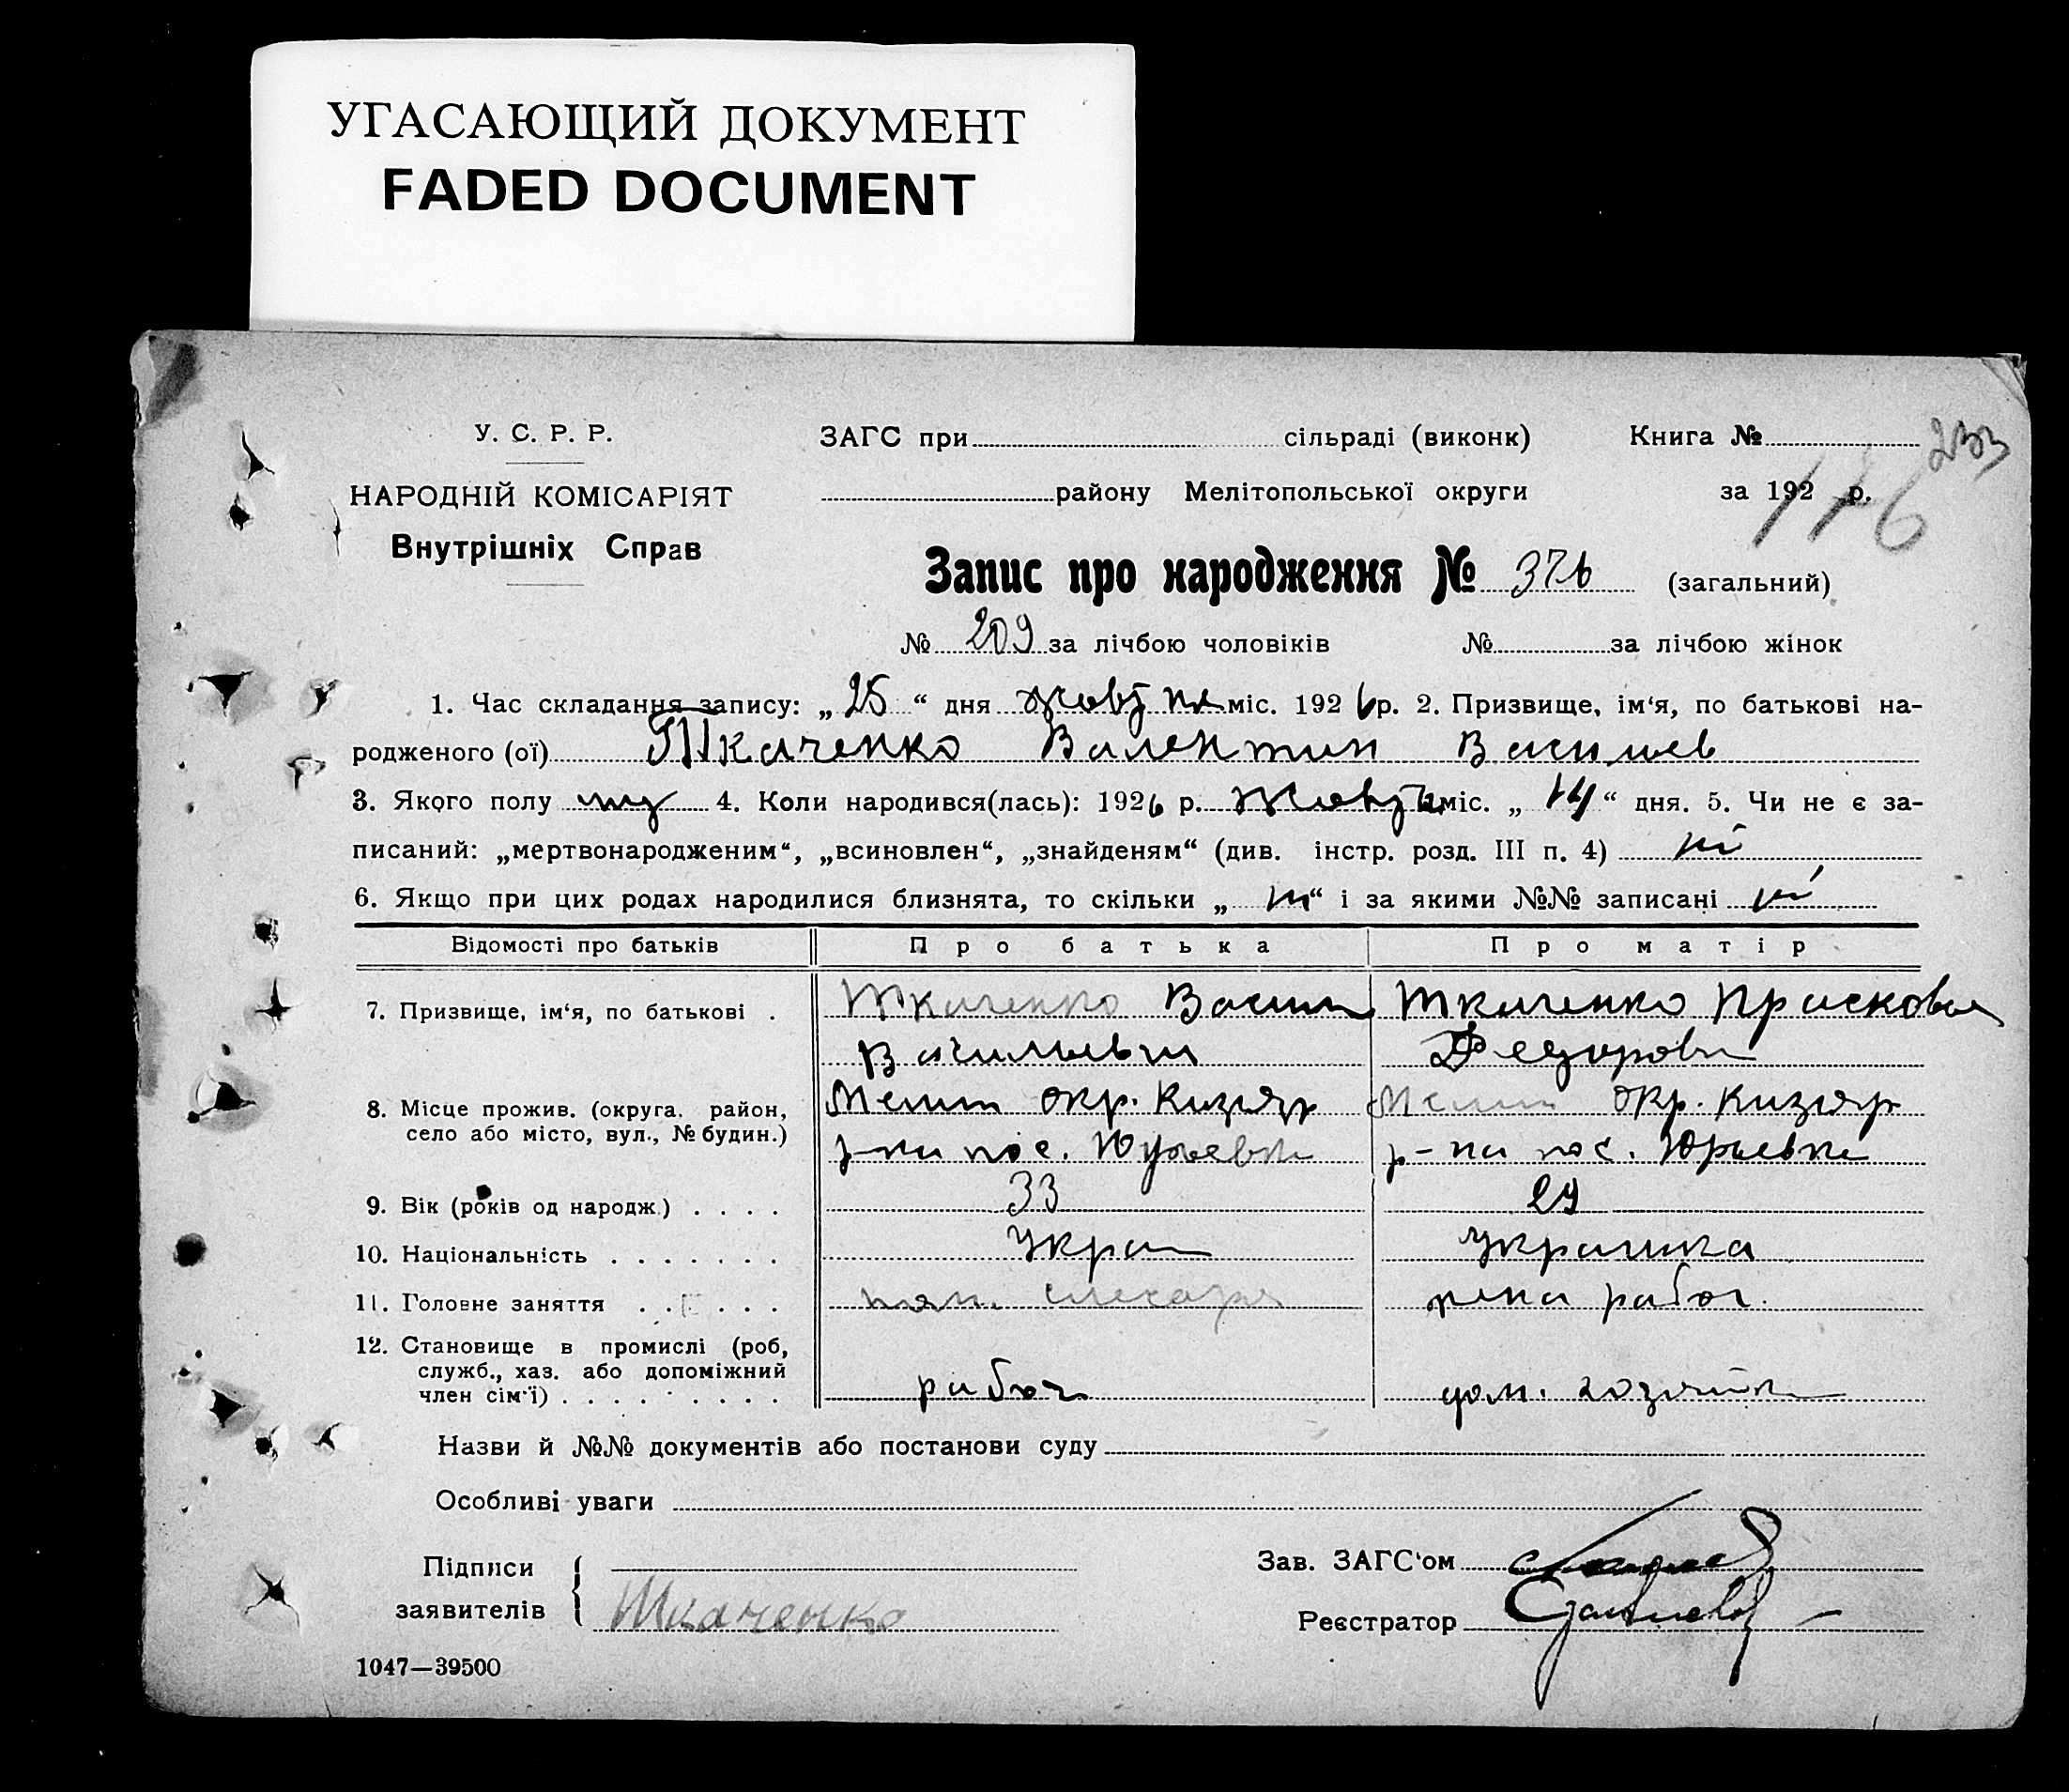 УГАСАЮЩИЙ ДОКУМЕНТ
FADED DOCUMENT
У. С. Р. Р.
НАРОДНІЙ КОМІСАРІЯТ
Внутрішніх Справ
ЗАГС при сільраді (виконк)
району Мелітопольської округи
Книга №
233
за 192 р.
116
Запис про народження № 376 (загальний)
№ 209 за лічбою чоловіків № за лічбою жінок
1. Час складання запису: „ 25 “ дня жовтня міс. 1926 р. 2. Призвище, ім‘я, по батькові на-
родженого (ої) Ткаченко Валентин Васильев
3. Якого полу муж 4. Коли народився(лась): 1926 р. жовтн міс. „ 14 “ дня. 5. Чи не є за-
писаний: „мертвонародженим“, „всиновлен“, „знайденям“ (див. інстр. розд. III п. 4) ні
6. Якщо при цих родах народилися близнята, то скільки „ ні “ і за якими №№ записані ні
Відомості про батьків Про батька Про матір
7. Призвище, ім‘я, по батькові . Ткаченко Васил Ткаченко Прасковья
Васильевич Федоровн
8. Місце прожив. (округа, район, село або місто, вул., № будин.) Мелит окр. Кизияр Мелит окр. Кизияр
р-на пос. Юрьевка р-на пос. Юрьевка
9. Вік (років од народж.) . . . . 33 29
10. Національність . . . . . . . Укра Украинка
11. Головне заняття . . . . . . пом. слесаря жена рабоч.
12. Становище в промислі (роб,
служб., хаз. або допоміжний
член сім‘ї) . . . . . . . . . рабоч дом. хозяйка
Назви й №№ документів або постанови суду
Особливі уваги
Підписи
заявителів Ткаченко
Зав. ЗАГС‘ом
Реєстратор
1047—39500